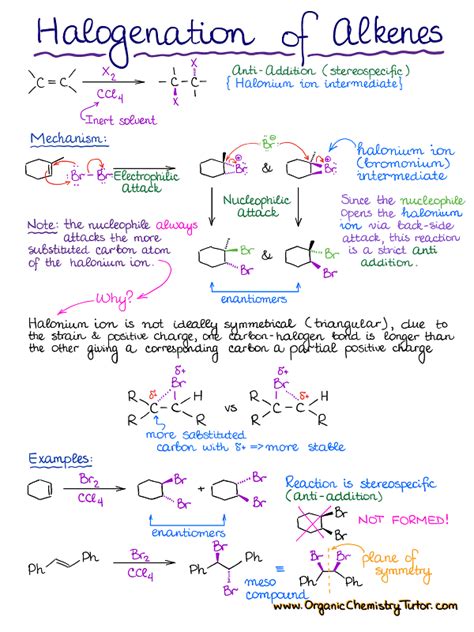 Halogenation of Alkenes
C=C
X₂
CCl₄
X
C-C
X
Anti-Addition (stereospecific)
{ Halonium ion intermediate}
Inert solvent
Mechanism:
Br
Br-Br
Electrophilic
Attack
Br
&
Br
halonium ion
(bromonium)
intermediate
Nucleophilic
Attack
Since the nucleophile
opens the halonium
ion via back-side
attack, this reaction
is a strict anti
addition.
Note: the nucleophile always
attacks the more
substituted carbon atom
of the halonium ion.
Br
Br
&
Br
Br
enantiomers
Why?
Halonium ion is not ideally symmetrical (triangular), due to
the strain & positive charge, one carbon-halogen bond is longer than
the other giving a corresponding carbon a partial positive charge
δ+ Br δ+
R C C H
R R
vs
δ+ Br δ+
R C C H
R R
more substituted
carbon with δ+ =>more stable
Examples:
Br₂
CCl₄
Br
Br
+
Br
Br
enantiomers
Reaction is stereospecific
(anti-addition)
Br
Br
NOT FORMED!
Ph Ph
Br₂
CCl₄
Br
Ph Ph
Br
meso
compound
=
Br Br
Ph Ph
plane of
symmetry
www.OrganicChemistryTutor.com